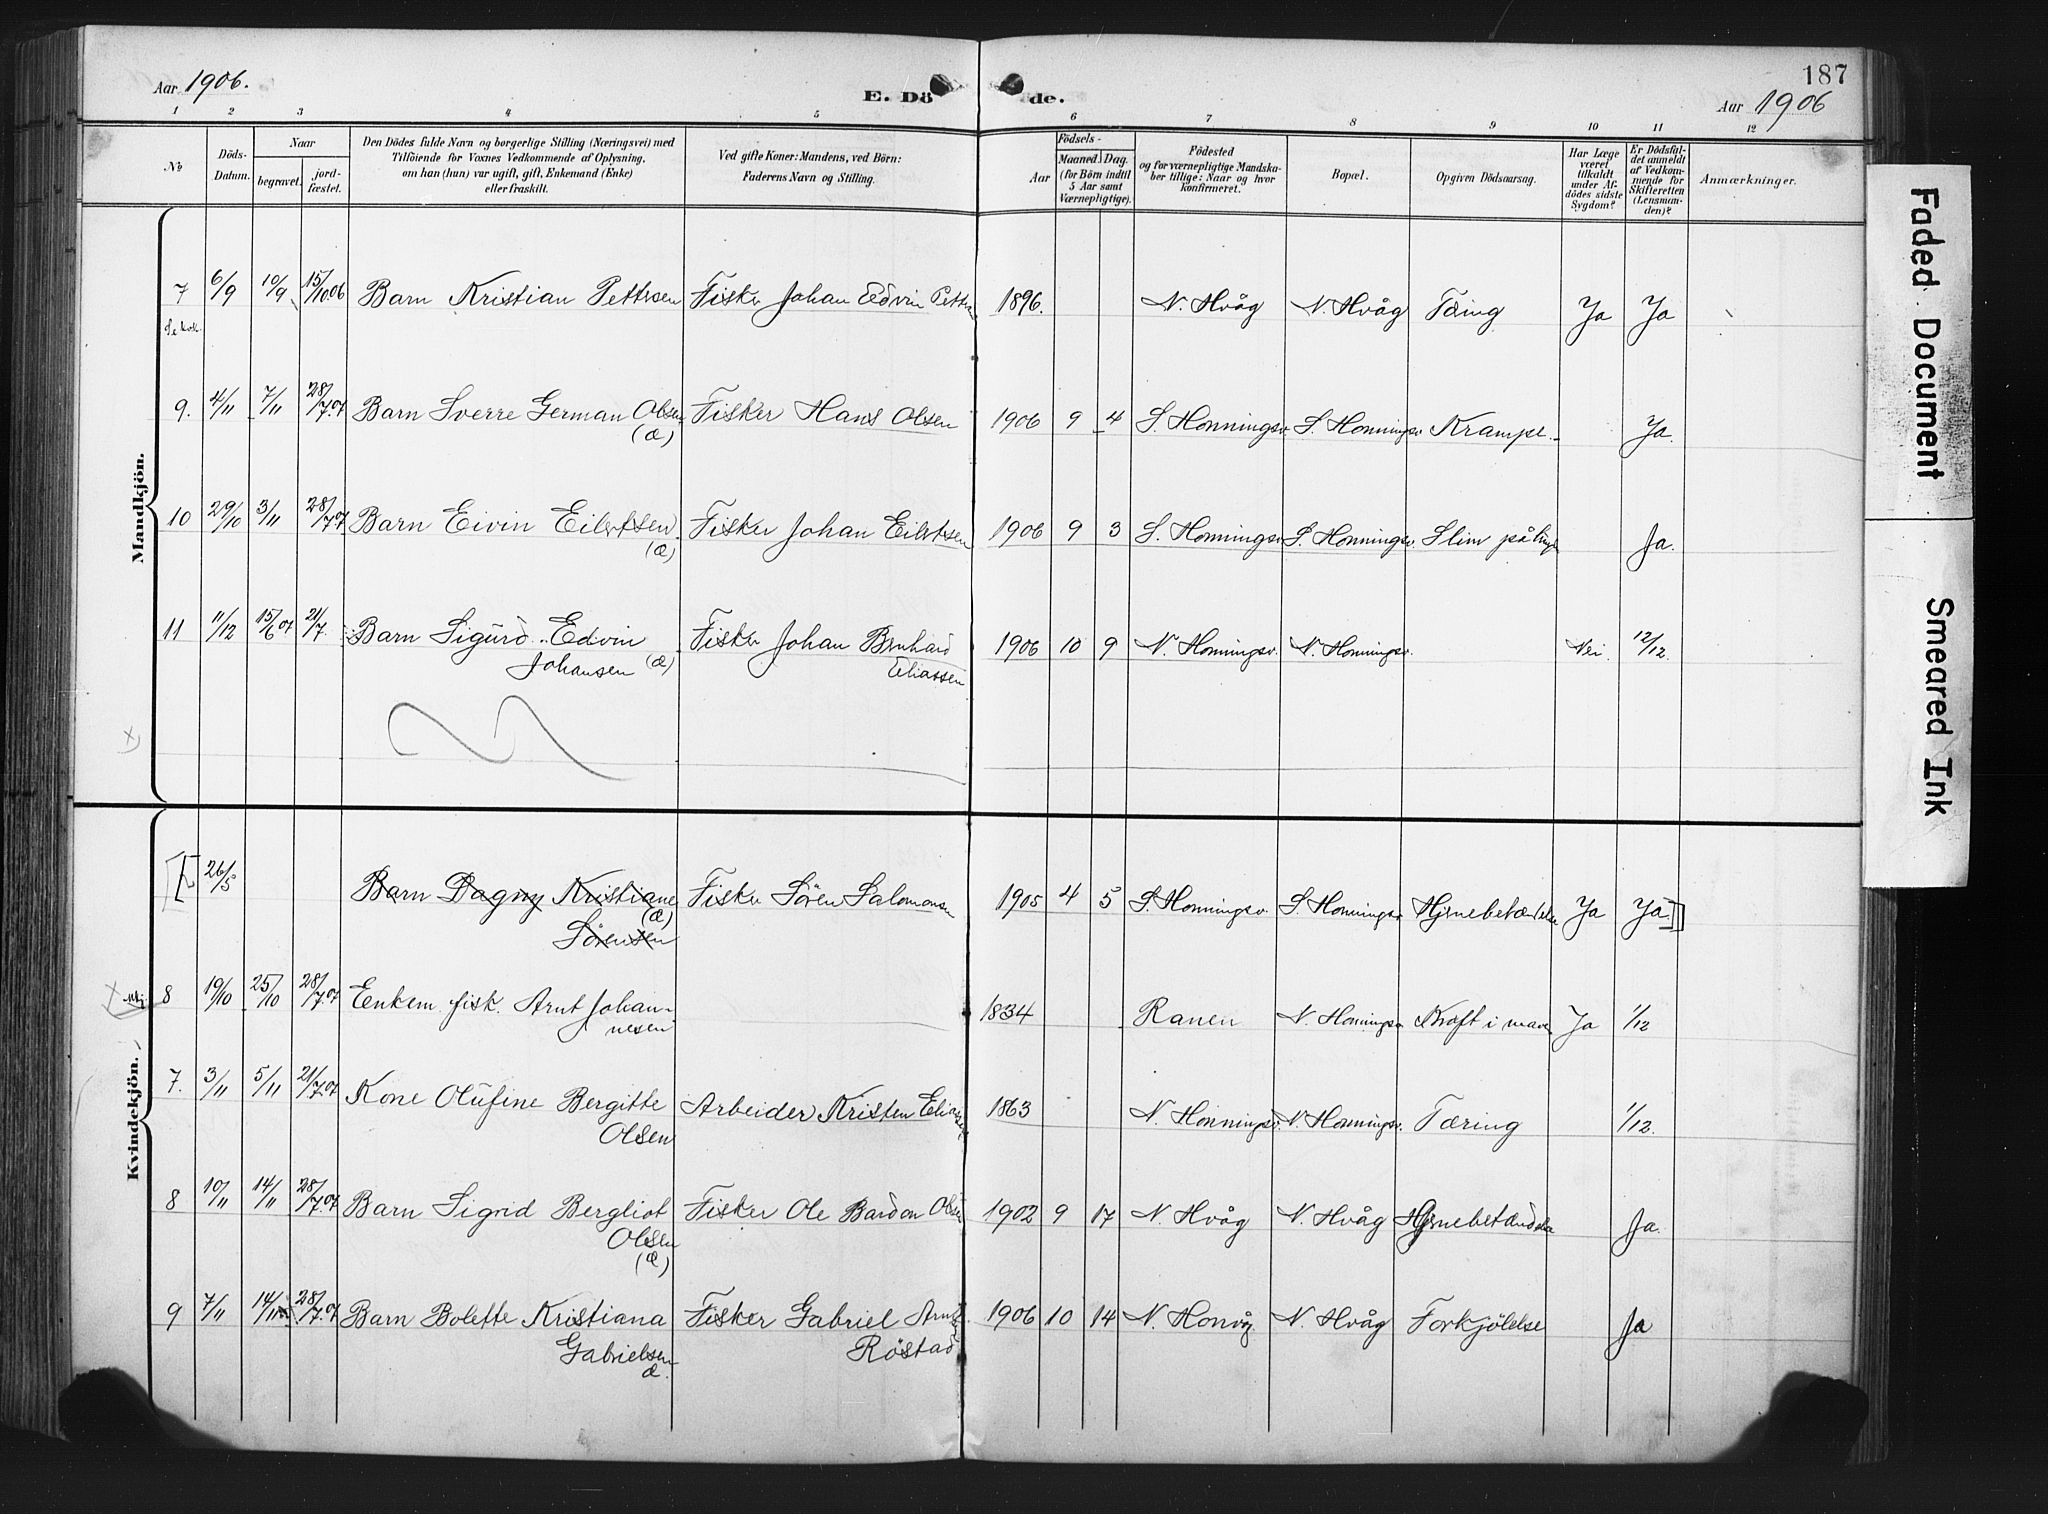 Aar 1906.
E. Dö de.
187
Aar 1906
1 2 3 4 5 6 7 8 9 10 11 12
No
Döds-Datum.
Naar
begravet.
jord-fæstet.
Den Dödes fulde Navn og borgerlige Stilling (Næringsvei) med
Tilföiende for Voxnes Vedkommende af Oplysning,
om han (hun) var ugift, gift, Enkemand (Enke)
eller fraskilt.
Ved gifte Koner: Mandens, ved Börn:
Faderens Navn og Stilling.
Födsels-
Aar
Maaned. Dag.
(for Börn indtil
5 Aar samt
Værnepligtige).
Födested
og for værnepligtige Mandska-
ber tillige: Naar og hvor
konfirmeret.
Bopæl.
Opgiven Dödsaarsag.
Har Læge
været
tilkaldt
under Af-
dödes sidste
Sygdom?
Er Dödsfal-
det anmeldt
af Vedkom-
mende for
Skifteretten
(Lensman-
den)?
Anmærkninger.
Mandkjön.
7 6/9 10/9 15/10 06 Barn Kristian Pettersen Fisker Johan Edvin Petters 1896. N. Hvåg N. Hvåg Tæring Ja Ja
9. 4/11 7/11 28/7.07 Barn Sverre German Olsen Fisker Hans Olsen 1906 9 4 S. Honningsv. S. Honningsv. Krampe. Ja.
(æ)
10 29/10 3/11 28/7.07 Barn Eivin Eilertsen Fisker Johan Eilertsen 1906 9 3 S. Honningsv. S. Honningsv. Slim på Ja.
(æ)
11 11/12 15/6 07 21/7. Barn Sigurd Edvin Fisker Johan Bernhard 1906 10 9 N. Honningsv. N. Honningsv. Nei. 12/12.
Johansen (æ) Eliassen
Kvindekjön.
26/5 Barn Dagny Kristiane Fisker Sören Salomonsen 1905 4 5 S. Honningsv. S. Honningsv. Hjernebetændelse Ja Ja.
(æ)
Sörensen
8 19/10 25/10 28/7.07 Enkem. fisk. Arnt Johan- 1834 Ranen N. Honningsv. Kræft i maven Ja 1/12
nesen
7. 3/11 5/11 21/7.07 Kone Olufine Bergitte Arbeider Kristen Eliassen 1863 N. Honningsv. N. Honningsv. Tæring 1/12.
Olsen
8 10/11 14/11 28/7.07 Barn Sigrid Bergliot Fisker Ole Bardon Olsen 1902 9 17 N. Hvåg N. Hvåg Hjernebetændelse Ja.
Olsen
(æ)
9 7/11 14/11 28/7.07 Barn Bolette Kristiana Fisker Gabriel 1906 10 14 N. Honvåg. N. Hvåg Forkjölelse Ja
Gabrielsen Röstad
æ.
Faded Document
Smeared Ink